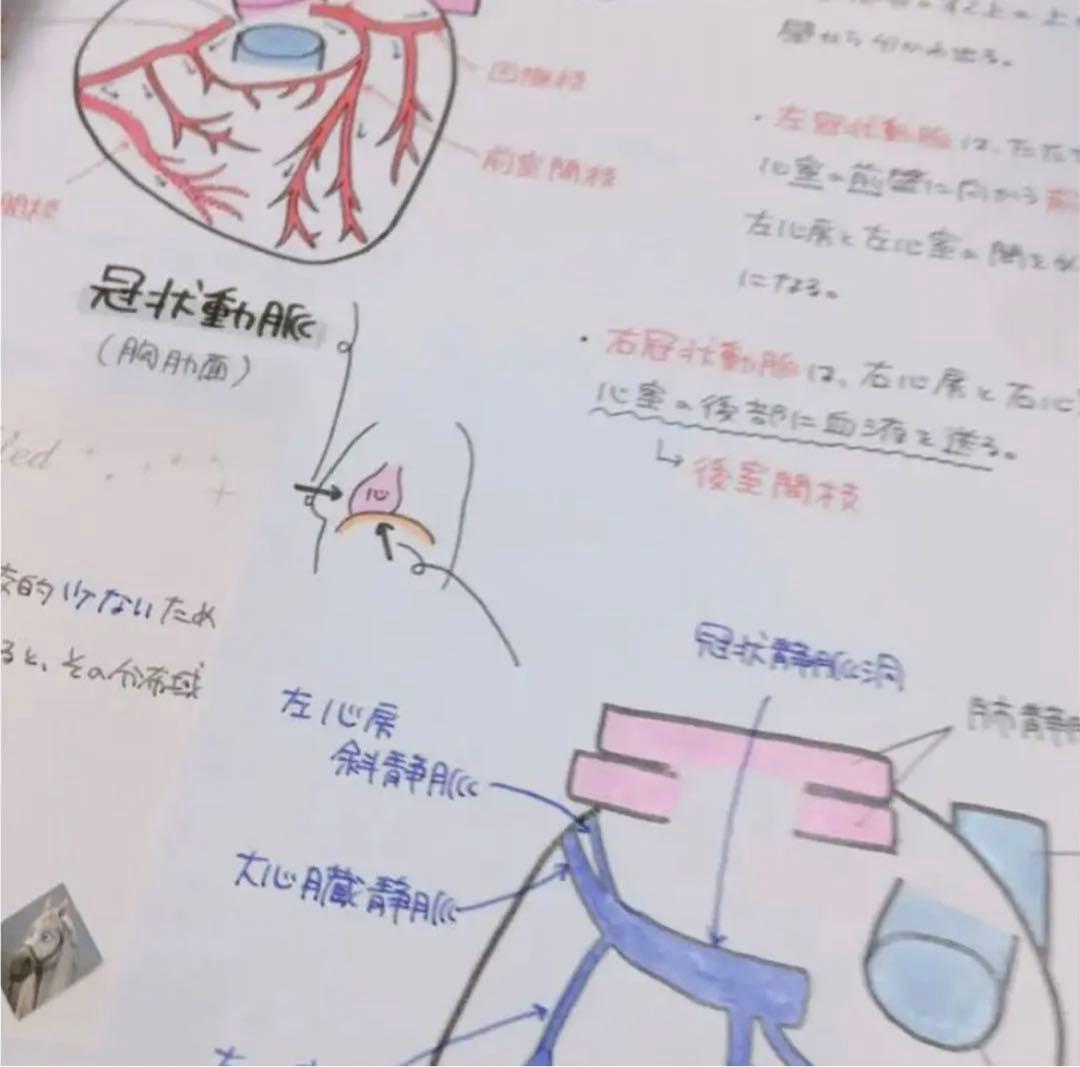 壁から分かれ出る。
回旋枝
・左冠状動脈は、ただち
前室間枝
心室の前壁に向かう前
間枝
左心房と左心室の間を
になる。
冠状動脈
(胸肋面)
・右冠状動脈は、右心房と右心
心室の後部に血液を送る。
↳ 後室間枝
心
較的少ないため
ると、その分布域
冠状静脈洞
肺静
左心房
斜静脈
大心臓静脈